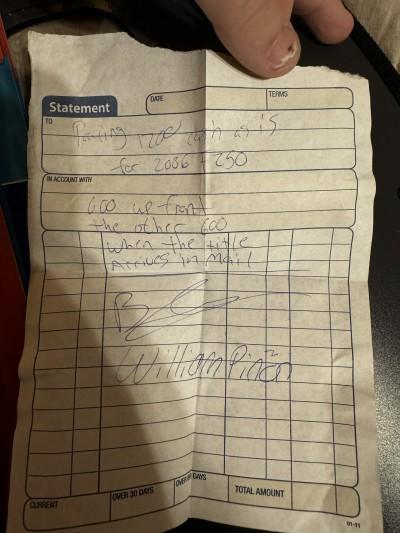 Statement
DATE
TERMS
TO
Paying 1200 cash as is
for 2006 F250
IN ACCOUNT WITH
600 up front
the other 600
when the title
Arrives in Mail
William Piñon
CURRENT
OVER 30 DAYS
OVER 60 DAYS
TOTAL AMOUNT
01-11